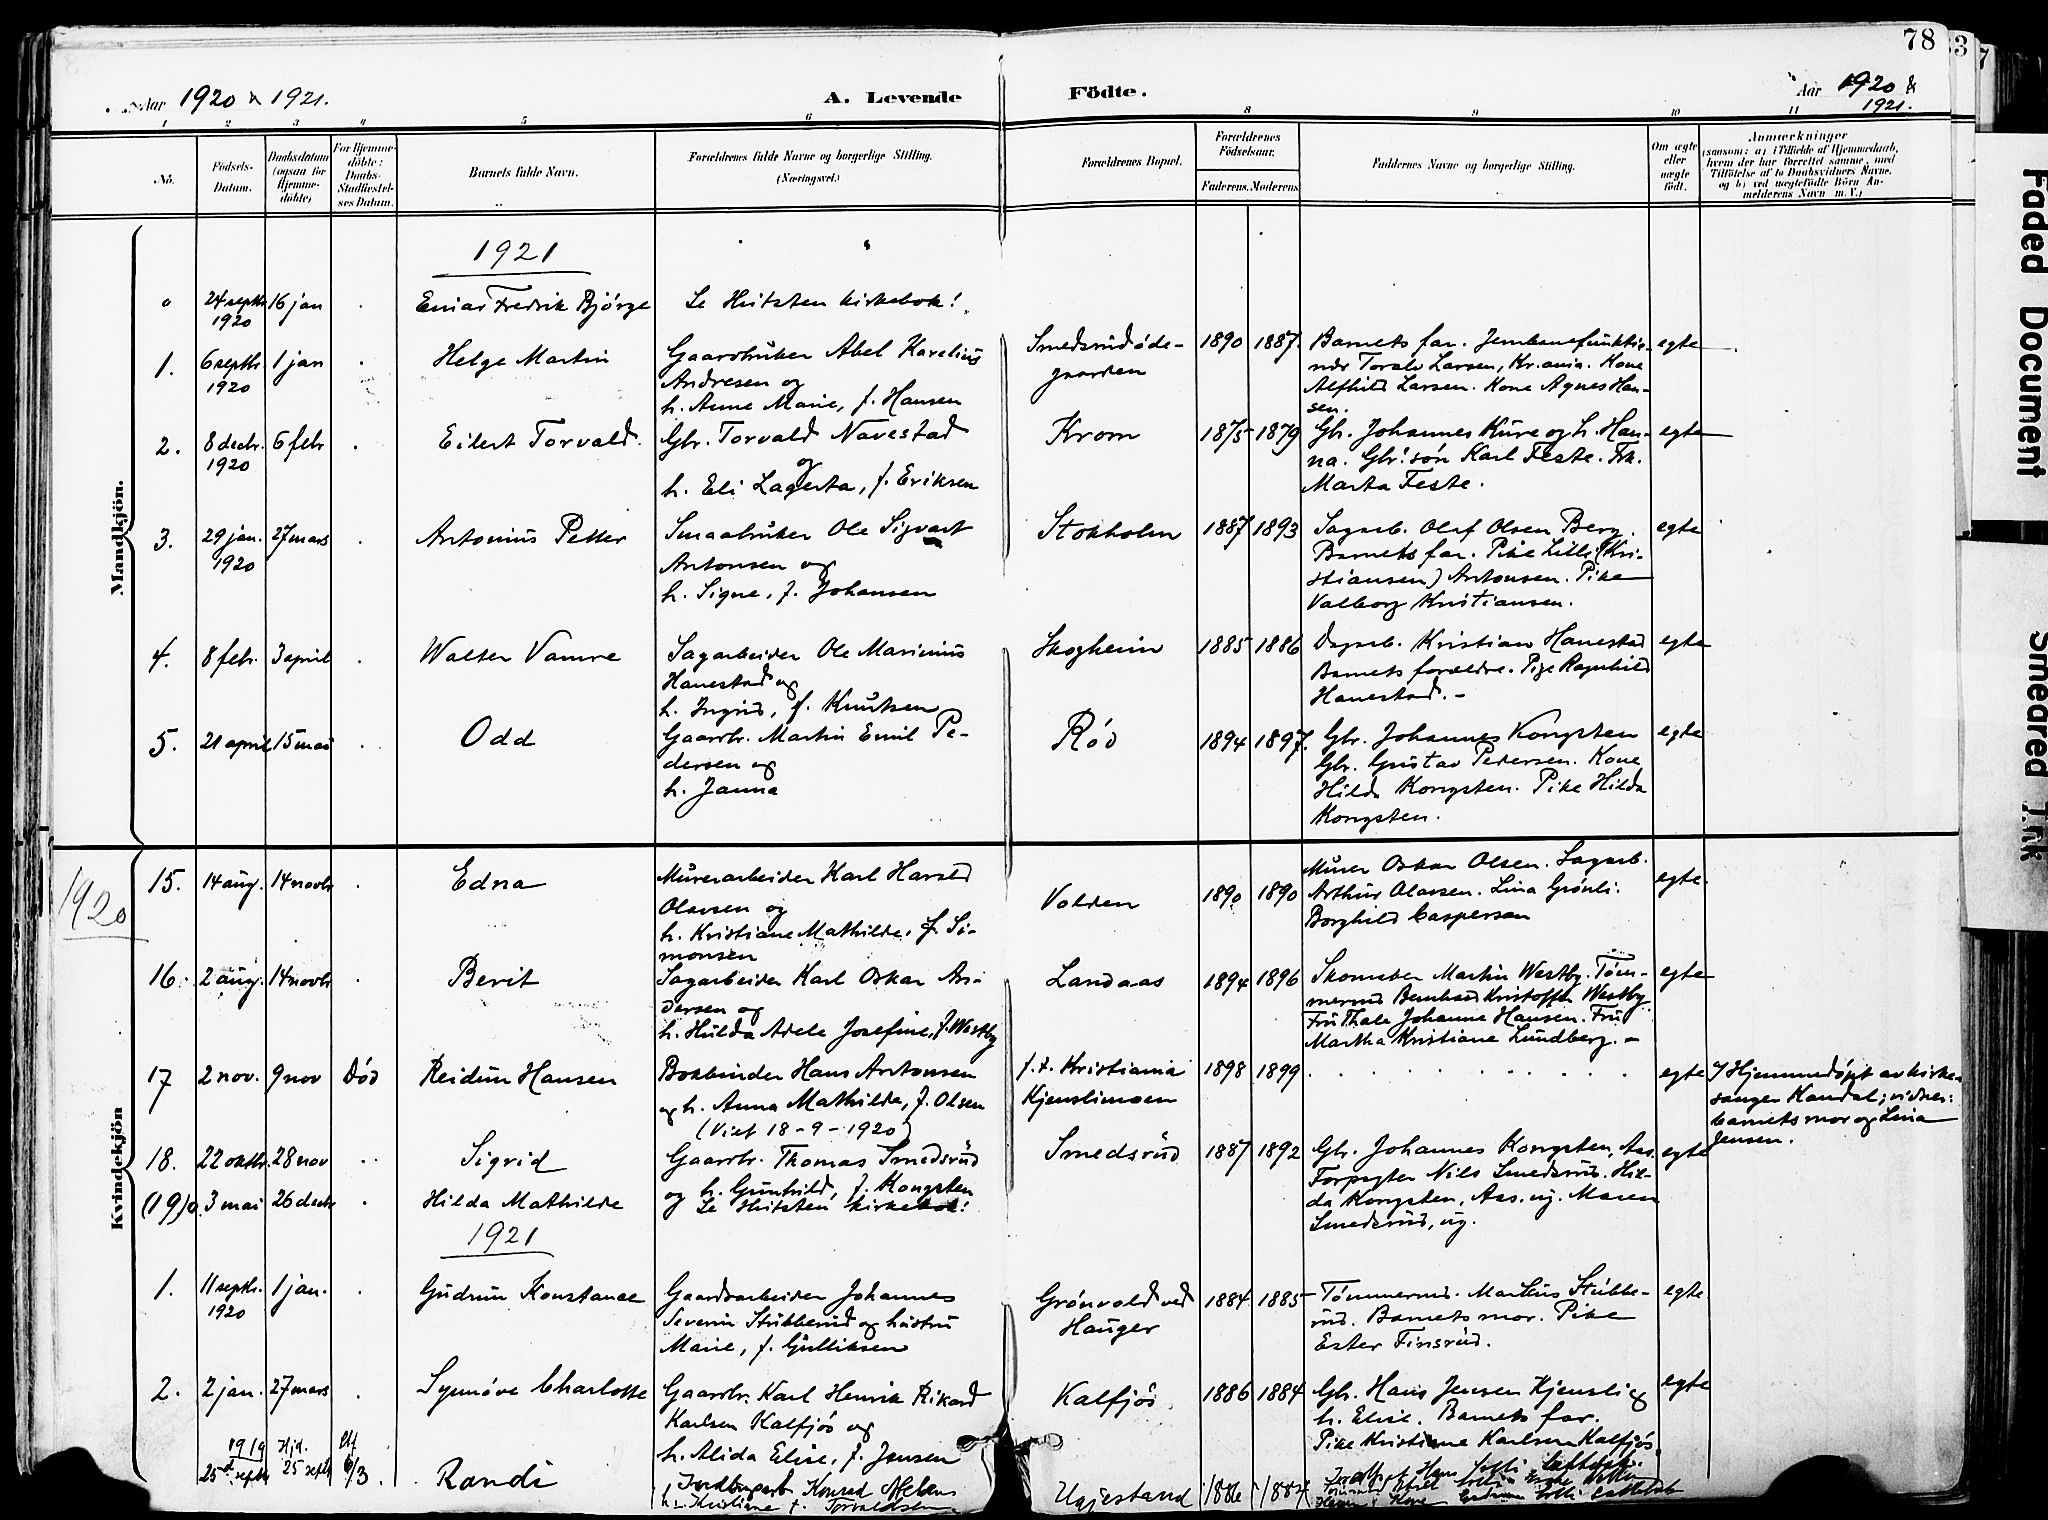 78
Aar 1920 & 1921.
A. Levende Födte.
Aar 1920 &
1921.
1 2 3 4 5 6 8 9 10 11
No.
Födsels-
Datum.
Daabsdatum
(ogsaa for
Hjemme-
döbte)
For Hjemme-
döbte:
Daabs-
Stadfæstel-
ses Datum.
Barnets fulde Navn.
Forældrenes fulde Navne og borgerlige Stilling.
(Næringsvei.)
Forældrenes Bopæl.
Forældrenes
Födselsaar.
Faderens. Moderens.
Faddernes Navne og borgerlige Stilling.
Om ægte
eller
uægte
födt.
Anmærkninger
(saasom: a) i Tilfælde af Hjemmedaab,
hvem der har forrettet samme, med
Tilföielse af to Daabsvidners Navne.
og b) ved uægtefödte Börn An-
melderens Navn m. V.)
Mandkjön.
1921
0 24 septbr 1920 16 jan Einar Fredrik Bjørge Se Hvitsten kirkebok!
1. 6 septbr. 1920 1 jan Helge Martin
Gaardbruker Abel Karelius
Andresen og
h. Anne Marie, f. Hansen
Smedsrudøde-
gaarden
1890 1887.
Barnets far. Jernbanefunktio-
nær Toralv Larsen, Kr.ania. Kone
Alfhild Larsen. Kone Agnes Han-
sen.
egte
2. 8 decbr. 1920 6 febr Eilert Torvald.
Gbr. Torvald Navestad
og
h. Eli Lagerta, f. Eriksen
Krom
1875 1879
Gb. Johannes Kure og h. Han-
na. Gbr. søn Karl Feste. Frk.
Marta Feste.
egte
3. 29 jan. 1920 27 mars Antonius Petter
Smaabruker Ole Sigvart
Antonsen og
h. Signe, f. Johansen
Stokholm
1887 1893
Sagarb. Olaf Olsen Berg.
Barnets far. Pike Lilli (Kri-
stiansen) Antonsen. Pike
Valborg Kristiansen.
egte
4. 8 febr. 3 april Walter Vamre
Sagarbeider Ole Marinius
Hanestad og
h. Ingrid, f. Knutsen
Skogheim
1885 1886
Dagarb. Kristian Hanestad
Barnets forældre. Pige Ragnhild
Hanestad. -
egte
5. 21 april 15 mai Odd
Gaardbr. Martin Emil Pe-
dersen og
h. Janna
Rød
1894 1897.
Gbr. Johannes Kongsten
Gbr. Gustav Pedersen. Kone
Hilda Kongsten. Pike Hilda
Kongsten.
egte
Kvindekjön
1920
15. 14 aug. 14 novbr Edna
Murerarbeider Karl Harald
Olavsen og
h. Kristiane Mathilde, f. Si-
monsen
Volden
1890 1890
Murer Oskar Olsen. Sagarb.
Arthur Olavsen. Lina Grønli.
Borghild Caspersen
egte.
16. 2 aug. 14 novbr Berit
Sagarbeider Karl Oskar An-
dersen og
h. Hulda Adele Josefine, f. Westby
Landaas
1894 1896
Skomaker Martin Westby. Tøm-
mermd Bernhard Kristoffer Westby
Fru Thale Johanne Hansen. Fru
Martha Kristiane Lundberg. -
egte
17 2 nov. 9 nov Død Reidun Hansen
Bokbinder Hans Antonsen
og h. Anna Mathilde, f. Olsen
(Viet 18-9-1920)
f.t. Kristiania
Kjenslimoen
1898 1899
egte
I Hjemmedøpt av kirke-
sanger Kandal; vidner:
barnets mor og Lina
Jensen.
18. 22 oktbr. 28 nov Sigrid
Gaardbr. Thomas Smedsrud
og h. Gunhild, f. Kongsten
Smedsrud
1887 1892
Gbr. Johannes Kongsten, Aas.
Forpagter Nils Smedsrud. Hil-
da Kongsten, Aas. ug. Maren
Smedsrud, ug.
egte
(19)0. 3 mai 26 decbr Hilda Mathilde Se Hvitsten kirkebok!
1921
1. 11 septbr. 1920 1 jan. Gudrun Konstanse
Gaardsarbeider Johannes
Severin Stubberud og hustru
Marie, f. Gulliksen
Grønvold ved
Hauger
1884 1885
Tømmermd. Martius Stubbe-
rud. Barnets mor. Pike
Ester Finsrud.
egte
2. 2 jan. 27 mars Synnøve Charlotte
Gaardbr. Karl Henrik Rikard
Karlsen Kalfjøs og
h. Alida Elise, f. Jensen
Kalfjøs
1886 1884
Gbr. Hans Jensen Kjensli og
h. Elise. Barnets far.
Pike Kristiane Karlsen Kalfjøs.
egte
1919 25d septbr Hjd. 25 septbr 6/3. Randi
Jordbrugsarb. Konrad
h. Kristiane f. Torvaldsen
1886 1884
Faded Document
Smeared Ink
3
7